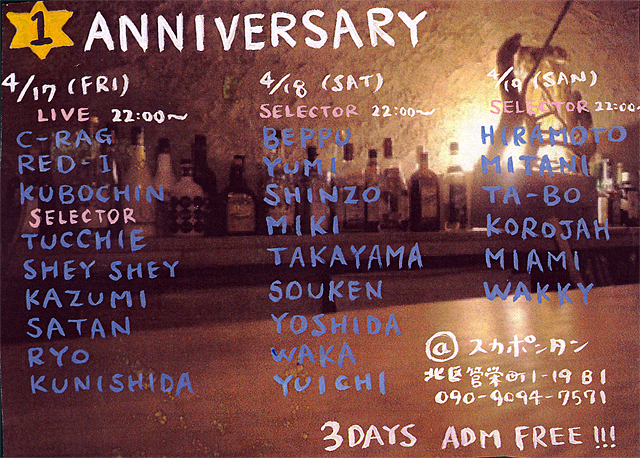 1 ANNIVERSARY
4/17 (FRI)
LIVE 22:00~
C-RAG
RED-I
KUBOCHIN
SELECTOR
TUCCHIE
SHEY SHEY
KAZUMI
SATAN
RYO
KUNISHIDA
4/18 (SAT)
SELECTOR 22:00~
BEPPU
YUMI
SHINZO
MIKI
TAKAYAMA
SOUKEN
YOSHIDA
WAKA
YUICHI
4/19 (SAN)
SELECTOR 22:00~
HIRAMOTO
MITANI
TA-BO
KOROJAH
MIAMI
WAKKY
@ スカポンタン
北区菅栄町1-19 B1
090-9094-7571
3 DAYS ADM FREE !!!